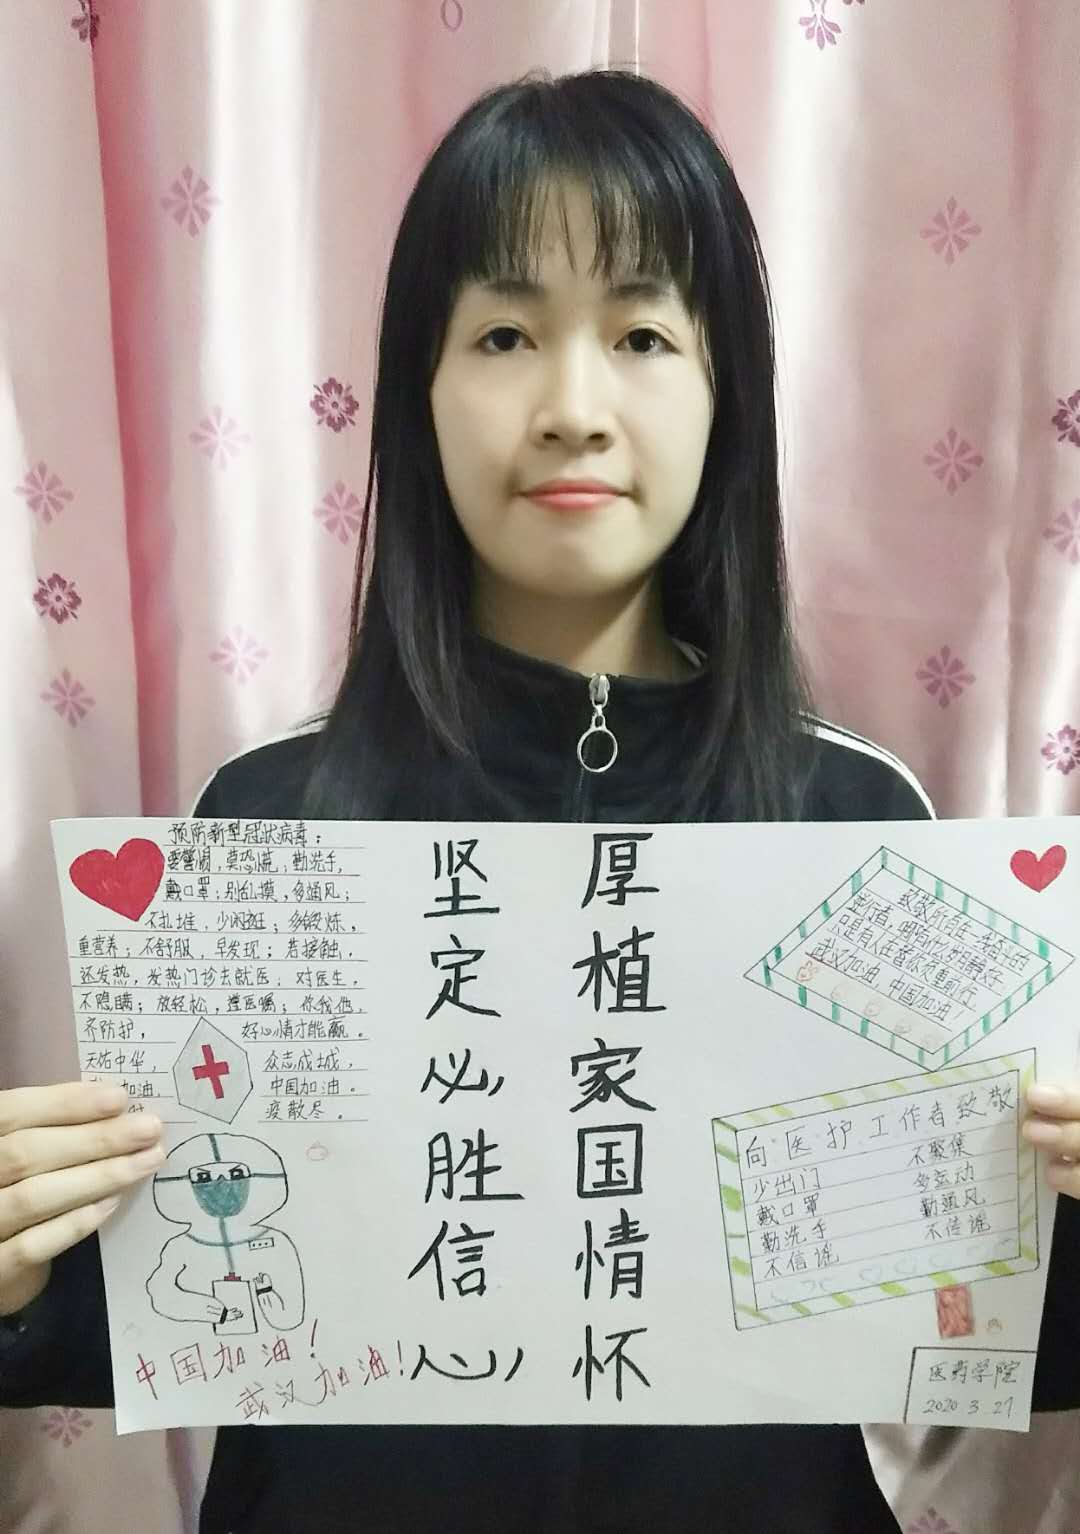 预防新型冠状病毒：
要警惕，莫恐慌，勤洗手，
戴口罩；别乱摸，多通风；
不扎堆，少闲逛；多锻炼，
重营养；不舒服，早发现；若接触，
还发热，发热门诊去就医；对医生，
不隐瞒；放轻松，遵医嘱；你我他，
齐防护，
好心情才能赢。
天佑中华，
众志成城，
加油，
中国加油。
疫散尽。
中国加油！
武汉加油！
坚定必胜信心
厚植家国情怀
致敬所有在一线奋斗的
岁月静好
只是有人在替你负重前行
武汉加油，中国加油！
向医护工作者致敬
少出门
不聚集
戴口罩
多运动
勤洗手
勤通风
不信谣
不传谣
医药学院
2020 3. 27